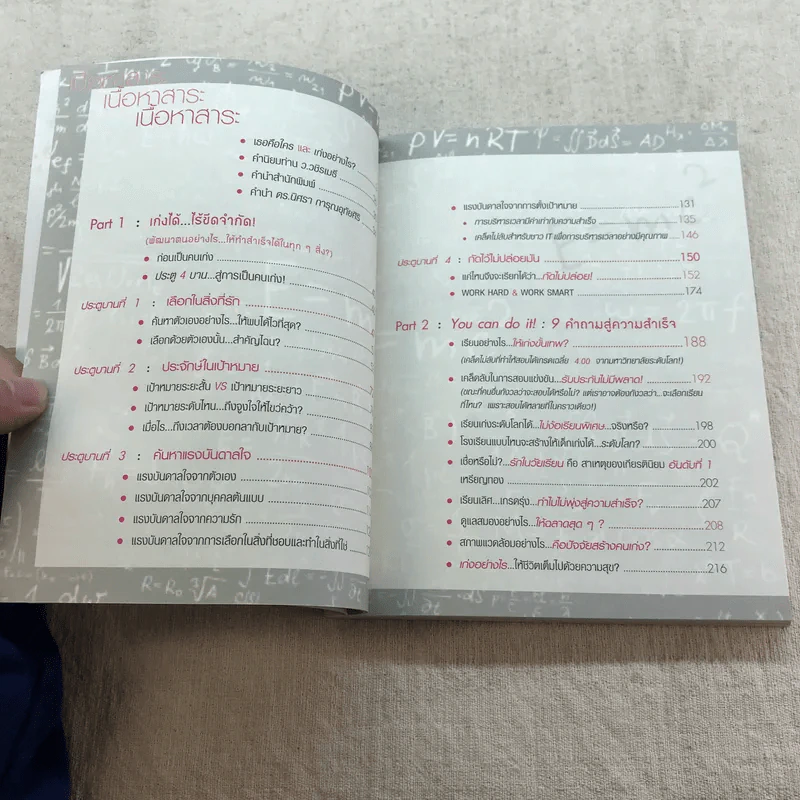 เนื้อหาสาระ
เนื้อหาสาระ
• เธอคือใคร และ เก่งอย่างไร?
• คำนิยมท่าน ว.วชิรเมธี
• คำนำสำนักพิมพ์
• คำนำ ดร.นิศรา การุณอุทัยศิริ
Part 1 : เก่งได้...ไร้ขีดจำกัด!
(พัฒนาตนอย่างไร...ให้ทำสำเร็จได้ในทุก ๆ สิ่ง?)
• ก่อนเป็นคนเก่ง
• ประตู 4 บาน...สู่การเป็นคนเก่ง!
ประตูบานที่ 1 : เลือกในสิ่งที่รัก
• ค้นหาตัวเองอย่างไร...ให้พบได้ไวที่สุด?
• เลือกด้วยตัวเองนั้น...สำคัญไฉน?
ประตูบานที่ 2 : ประจักษ์ในเป้าหมาย
• เป้าหมายระยะสั้น VS เป้าหมายระยะยาว
• เป้าหมายระดับไหน...ถึงจูงใจให้ไขว่คว้า?
• เมื่อไร...ถึงเวลาต้องบอกลากับเป้าหมาย?
ประตูบานที่ 3 : ค้นหาแรงบันดาลใจ
• แรงบันดาลใจจากตัวเอง
• แรงบันดาลใจจากบุคคลต้นแบบ
• แรงบันดาลใจจากความรัก
• แรงบันดาลใจจากการเลือกในสิ่งที่ชอบและทำในสิ่งที่ใช่
PV=nRT
• แรงบันดาลใจจากการตั้งเป้าหมาย 131
• การบริหารเวลามีค่าเท่ากับความสำเร็จ 135
• เคล็ดไม่ลับสำหรับชาว IT เพื่อการบริหารเวลาอย่างมีคุณภาพ 146
ประตูบานที่ 4 : กัดไว้ไม่ปล่อยมัน 150
• แค่ไหนจึงจะเรียกได้ว่า...กัดไม่ปล่อย! 152
• WORK HARD & WORK SMART 174
Part 2 : You can do it! : 9 คำถามสู่ความสำเร็จ
• เรียนอย่างไร...ให้เก่งขั้นเทพ? 188
(เคล็ดไม่ลับที่ทำให้สอบได้เกรดเฉลี่ย 4.00 จากมหาวิทยาลัยระดับโลก!)
• เคล็ดลับในการสอบแข่งขัน...รับประกันไม่มีพลาด! 192
(ขณะที่คนอื่นกังวลว่าจะสอบได้หรือไม่? แต่เราอาจต้องกังวลว่า...จะเลือกเรียน
ที่ไหน? เพราะสอบได้หลายที่ในคราวเดียว!)
• เรียนเก่งระดับโลกได้...ไม่ง้อเรียนพิเศษ...จริงหรือ? 198
• โรงเรียนแบบไหนจะสร้างให้เด็กเก่งได้...ระดับโลก? 200
• เชื่อหรือไม่?...รักในวัยเรียน คือ สาเหตุของเกียรตินิยม อันดับที่ 1
เหรียญทอง 202
• เรียนเลิศ...เกรดรุ่ง...ทำไมไม่พุ่งสู่ความสำเร็จ? 207
• ดูแลสมองอย่างไร...ให้ฉลาดสุด ๆ ? 208
• สภาพแวดล้อมอย่างไร...คือปัจจัยสร้างคนเก่ง? 212
• เก่งอย่างไร...ให้ชีวิตเต็มไปด้วยความสุข? 216